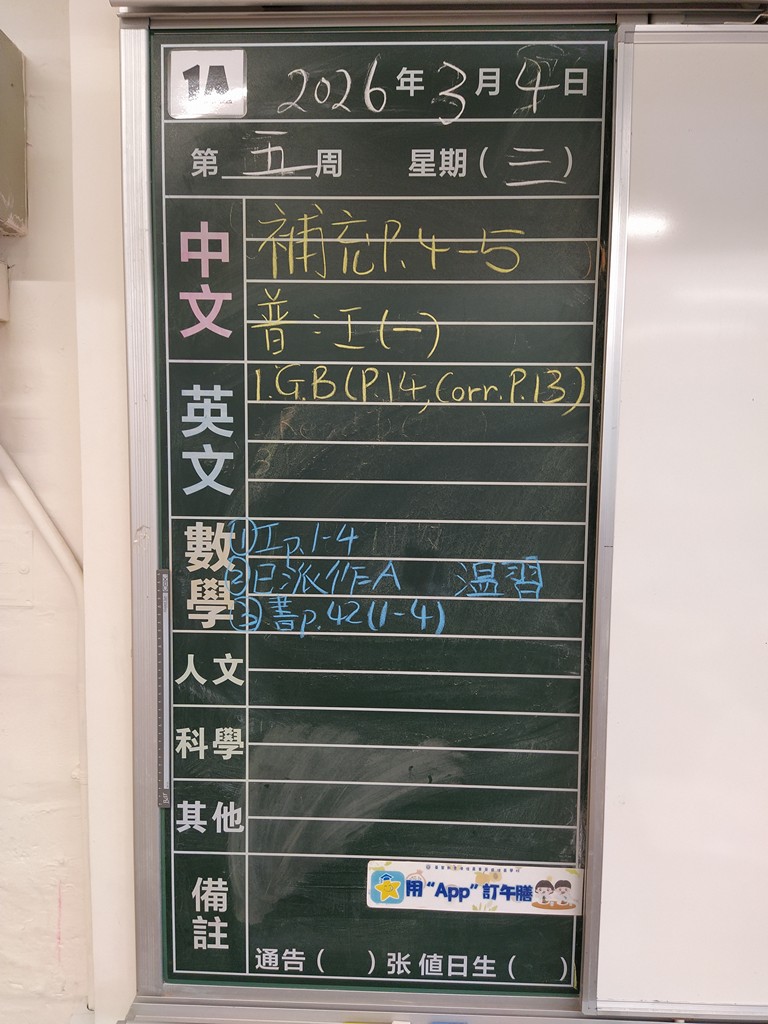 1A 2026年3月4日
第五周 星期(三)
中文
補充P.4-5
普:工(一)
英文
1.G.B(P.14,Corr.P.13)
數學
①工p.1-4
②已派作A 温習
③書p.42(1-4)
人文
科學
其他
備註
用“App”訂午膳
通告( )张 值日生( )